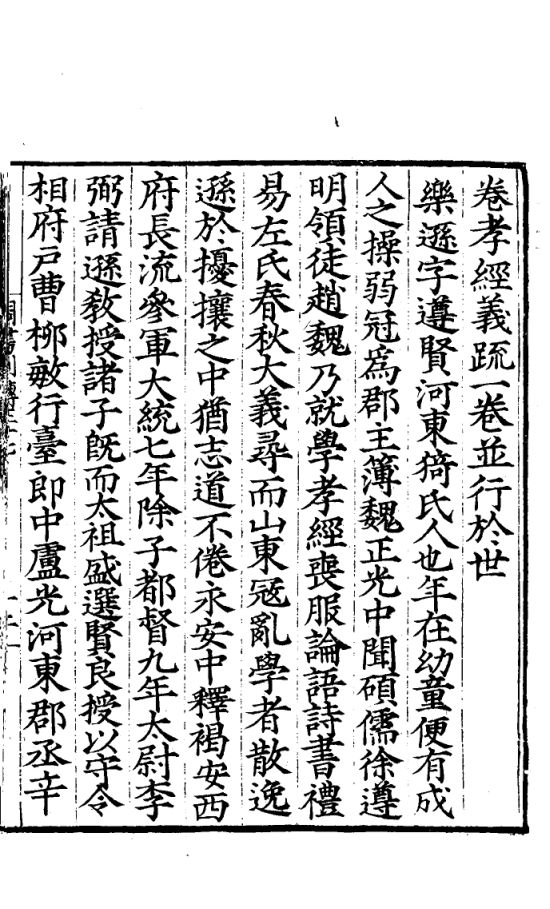 卷孝經義䟽一卷並行於世
樂遜字遵賢河東猗氏人也年在幼童便有成
人之操弱冠爲郡主簿魏正光中聞碩儒徐遵
明領徒趙魏乃就學孝經喪服論語詩書禮
易左氏春秋大義尋而山東冦亂學者散逸
遜於擾攘之中猶志道不倦永安中釋褐安西
府長流參軍大統七年除子都督九年太尉李
弼請遜教授諸子旣而太祖盛選賢良授以守令
相府戸曹栁敏行臺郎中盧光河東郡丞辛